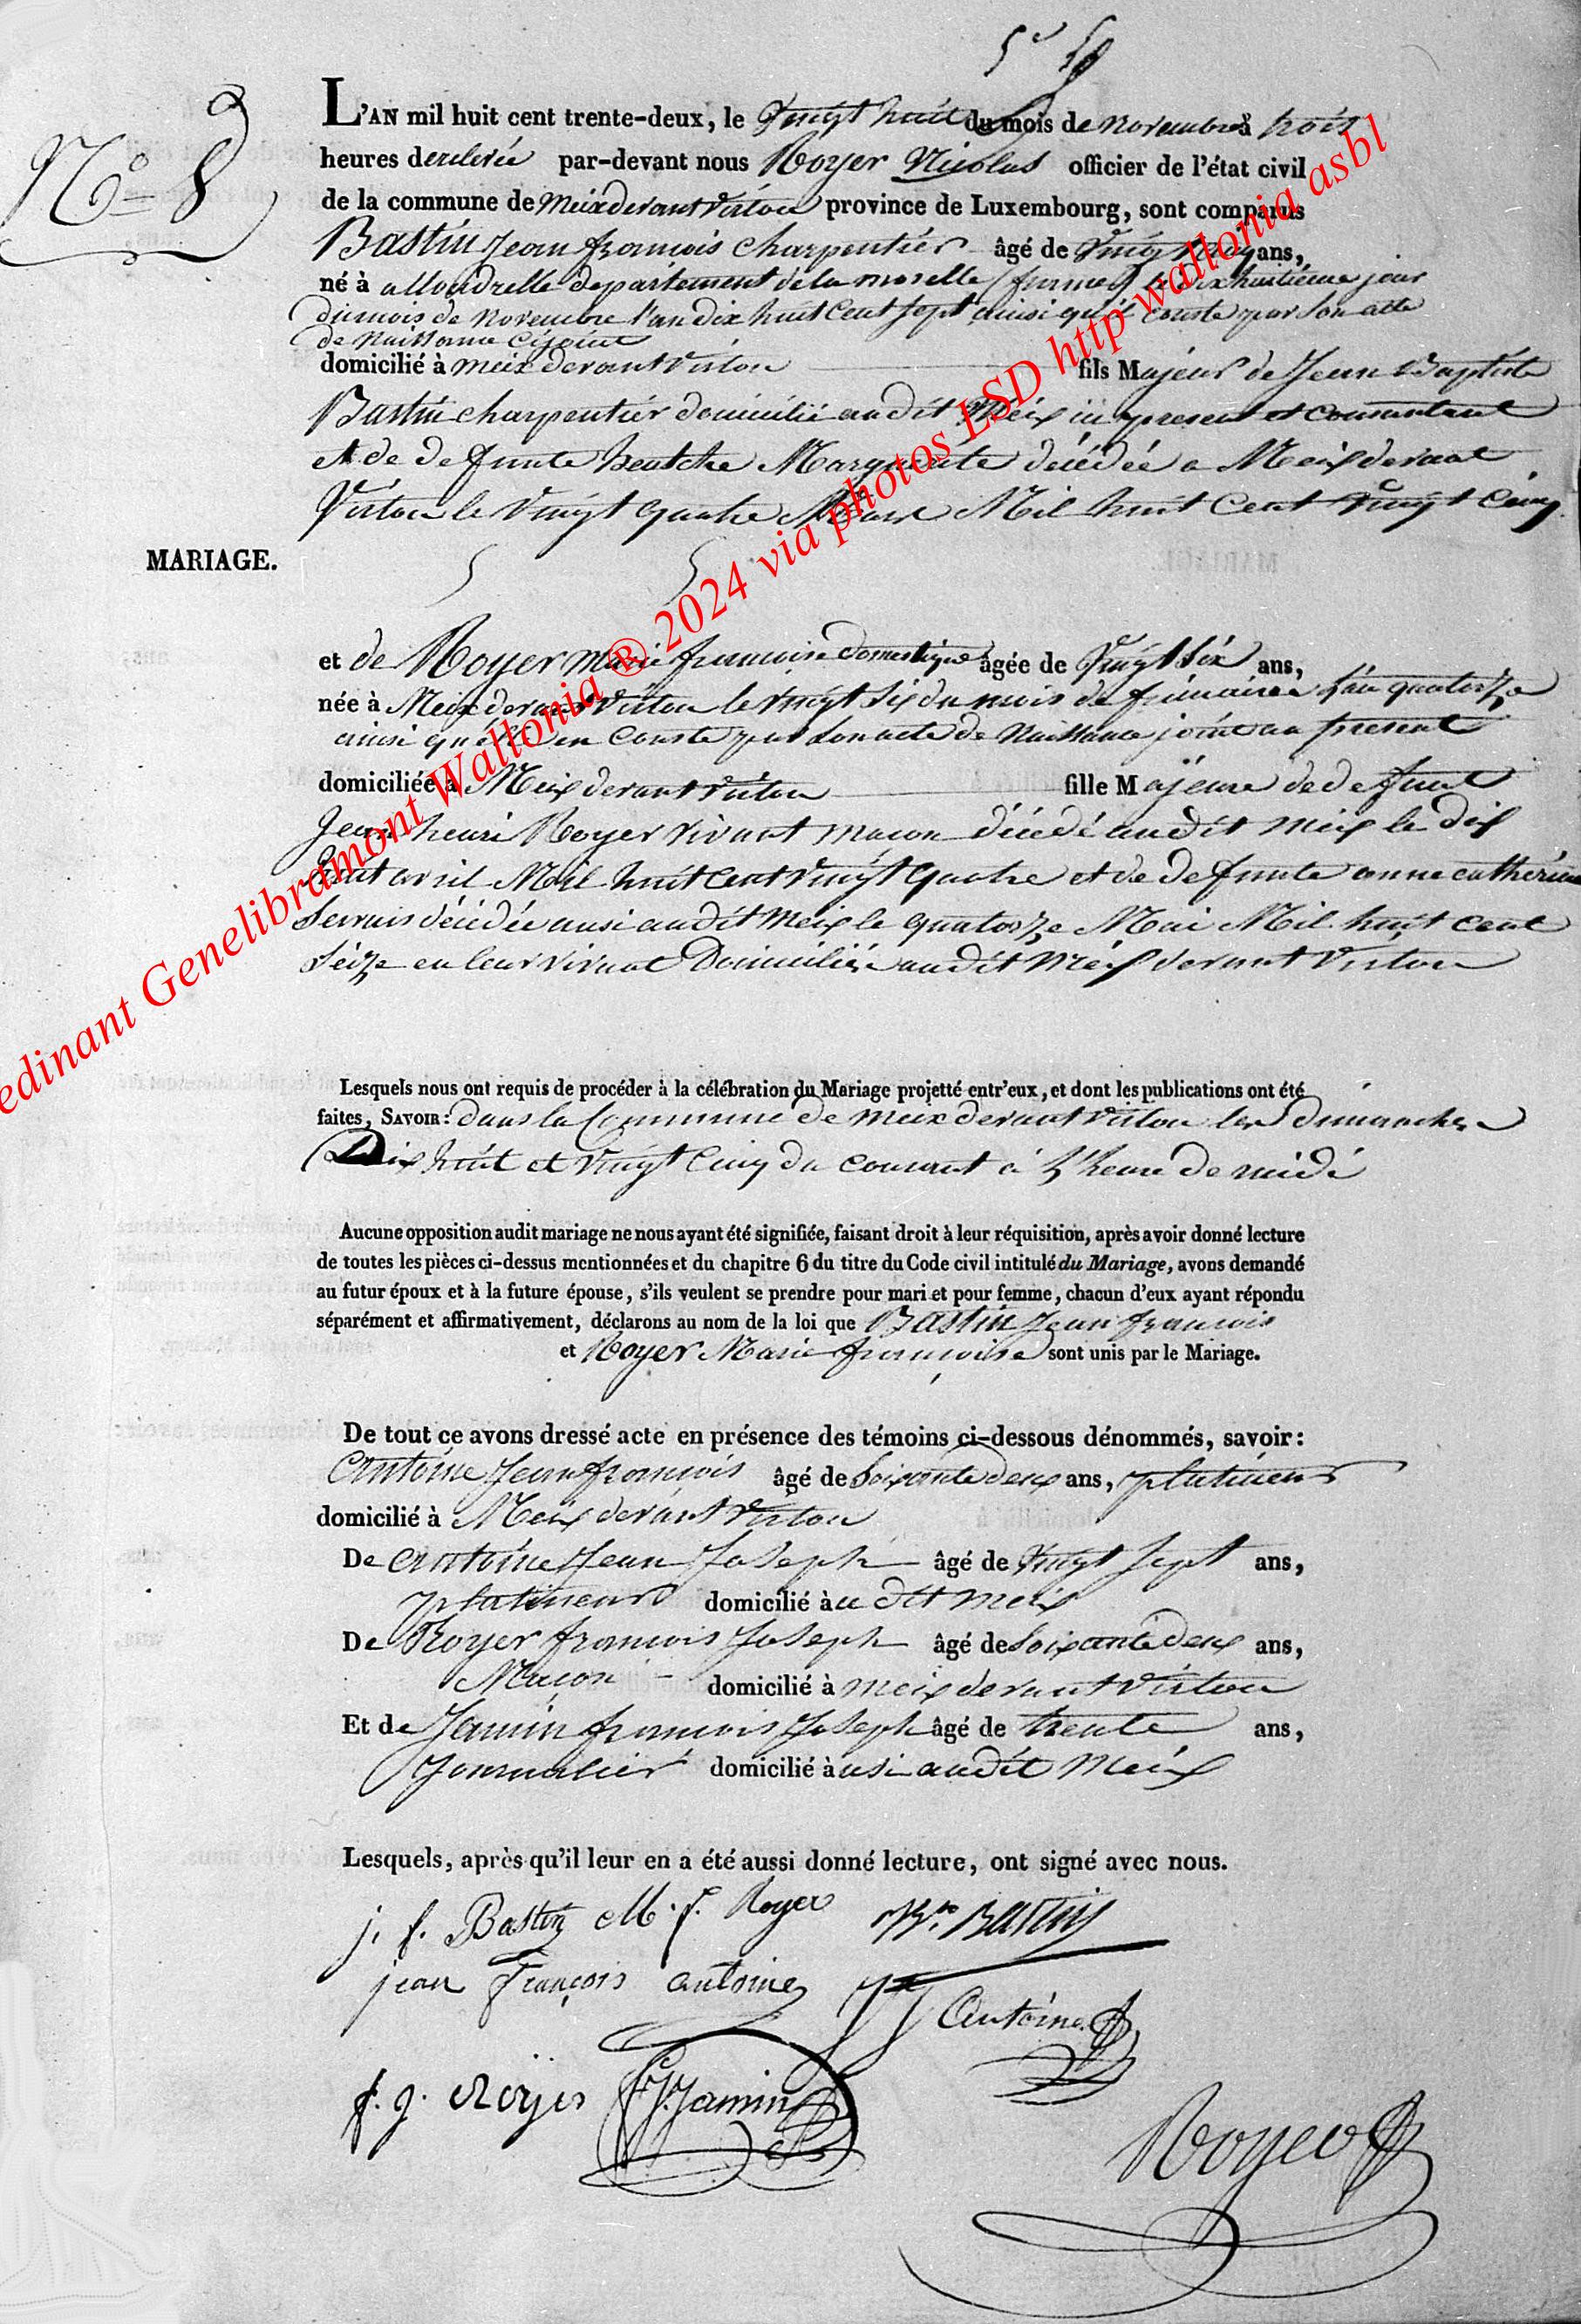 N° 8
L'AN mil huit cent trente-deux, le vingt huit du mois de novembre à trois
heures de relevée par-devant nous Royer Nicolas officier de l'état civil
de la commune de Meix devant Virton province de Luxembourg, sont comparus
Bastin Jean françois charpentier âgé de vingt cinq ans,
né à allondrelle departement de la moselle (france) le dix huitieme jour
du mois de novembre l'an dix huit cent sept ainsi qu'il conste par son acte
de Naissance cijoint
domicilié à meix devant virton fils Majeur de Jean Baptiste
Bastin charpentier domicilié audit Meix ici present et consentant
et de defunte Marguerite décédée a Meix devant
Virton le vingt quatre Mars Mil huit Cent vingt Cinq
MARIAGE.
et de Royer Marie françoise domestique âgée de vingt Six ans,
née à Meix devant Virton le vingt Six du mois de frimaire l'an quatorze
ainsi qu'elle en Conste par son acte de Naissance joint au present
domiciliée à Meix devant virton fille Majeure de defunt
Jean henri Royer vivant maçon décédé audit Meix le dix
huit avril Mil huit Cent vingt quatre et de defunte anne catherine
Servais décédée ausi audit Meix le quatorze Mai Mil huit cent
Seize en leur vivant Domiciliés audit Meix devant Virton
Lesquels nous ont requis de procéder à la célébration du Mariage projetté entr'eux, et dont les publications ont été
faites, SAVOIR: dans la Commune de Meix devant Virton les dimanches
Dix huit et vingt Cinq du courant à l'heure de midi
Aucune opposition audit mariage ne nous ayant été signifiée, faisant droit à leur réquisition, après avoir donné lecture
de toutes les pièces ci-dessus mentionnées et du chapitre 6 du titre du Code civil intitulé du Mariage, avons demandé
au futur époux et à la future épouse, s'ils veulent se prendre pour mari et pour femme, chacun d'eux ayant répondu
séparément et affirmativement, déclarons au nom de la loi que Bastin Jean françois
et Royer Marie françoise sont unis par le Mariage.
De tout ce avons dressé acte en présence des témoins ci-dessous dénommés, savoir:
Antoine Jean françois âgé de Soixante deux ans, platineur
domicilié à Meix devant Virton
De antoine Jean Joseph âgé de vingt Sept ans,
platineur domicilié à u dit Meix
De Royer françois Joseph âgé de Soixante deux ans,
Maçon domicilié à Meix devant Virton
Et de Jamin françois Joseph âgé de trente ans,
Journalier domicilié à usi audit Meix
Lesquels, après qu'il leur en a été aussi donné lecture, ont signé avec nous.
j. f. Bastin M. f. Royer Bastin
jean François antoine JJ Antoine
f. j. Royer FJ. Jamin
Royer
edinant Genelibramont Wallonia ® 2024 via photos LSD http wallonia asbl